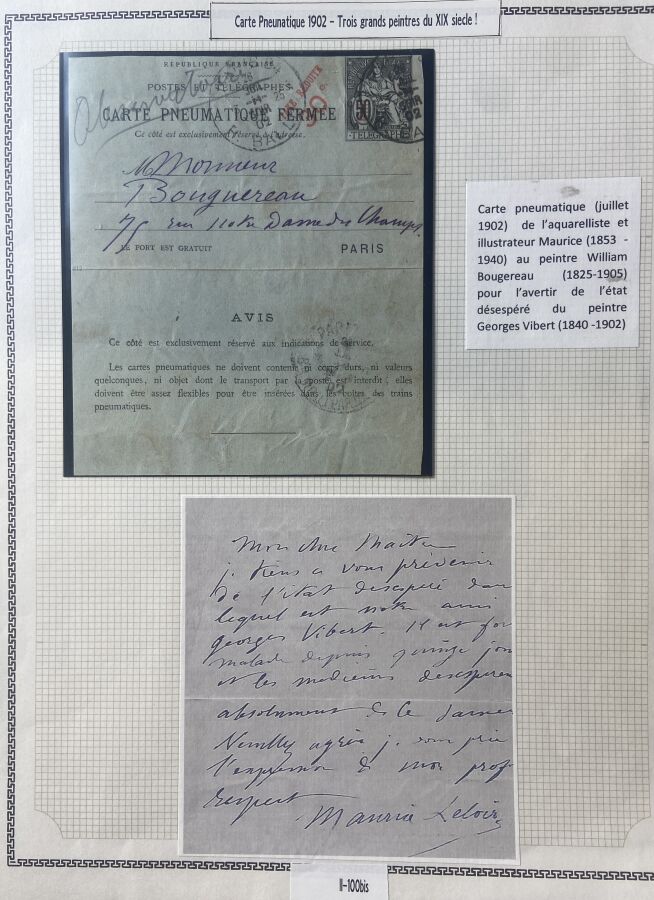 Carte Pneumatique 1902 – Trois grands peintres du XIX siecle !
RÉPUBLIQUE FRANÇAISE
POSTES ET TÉLÉGRAPHES
CARTE PNEUMATIQUE FERMÉE
Ce côté est exclusivement réservé à l'adresse.
TAXE RÉDUITE
30c
50
TÉLÉGRAPHE
02
Monsieur
Bouguereau
75 rue Notre Dame des Champs
LE PORT EST GRATUIT
PARIS
AVIS
Ce côté est exclusivement réservé aux indications de service.
Les cartes pneumatiques ne doivent contenir ni corps durs, ni valeurs
quelconques, ni objet dont le transport par la poste est interdit; elles
doivent être assez flexibles pour être insérées dans les boîtes des trains
pneumatiques.
PARIS
Carte pneumatique (juillet
1902) de l'aquarelliste et
illustrateur Maurice (1853 -
1940) au peintre William
Bougereau (1825-1905)
pour l'avertir de l'état
désespéré du peintre
Georges Vibert (1840 -1902)
Mon cher Maître
je tiens a vous prévenir
de l'état desespéré dans
lequel est notre ami
georges Vibert. Il est
malade depuis quinze jou
et les medecins desesperen
absolument de le sauver
Veuillez agréer je vous prie
l'expression de mon prof
respect
Maurice Leloir
II-100bis